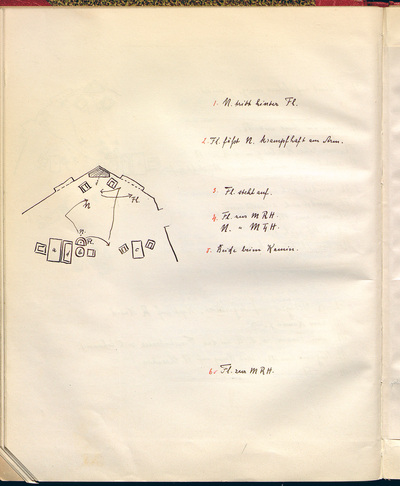 1. N. tritt hinter Fl.
2. Fl. faßt N. krampfhaft am Arm.
3. Fl. steht auf.
4. Fl. zur MRH.
N. " MLH
5. Beide beim Kamin.
6. Fl. zur MRH.
N
Fl
N.
Fl.
a
d
b
c